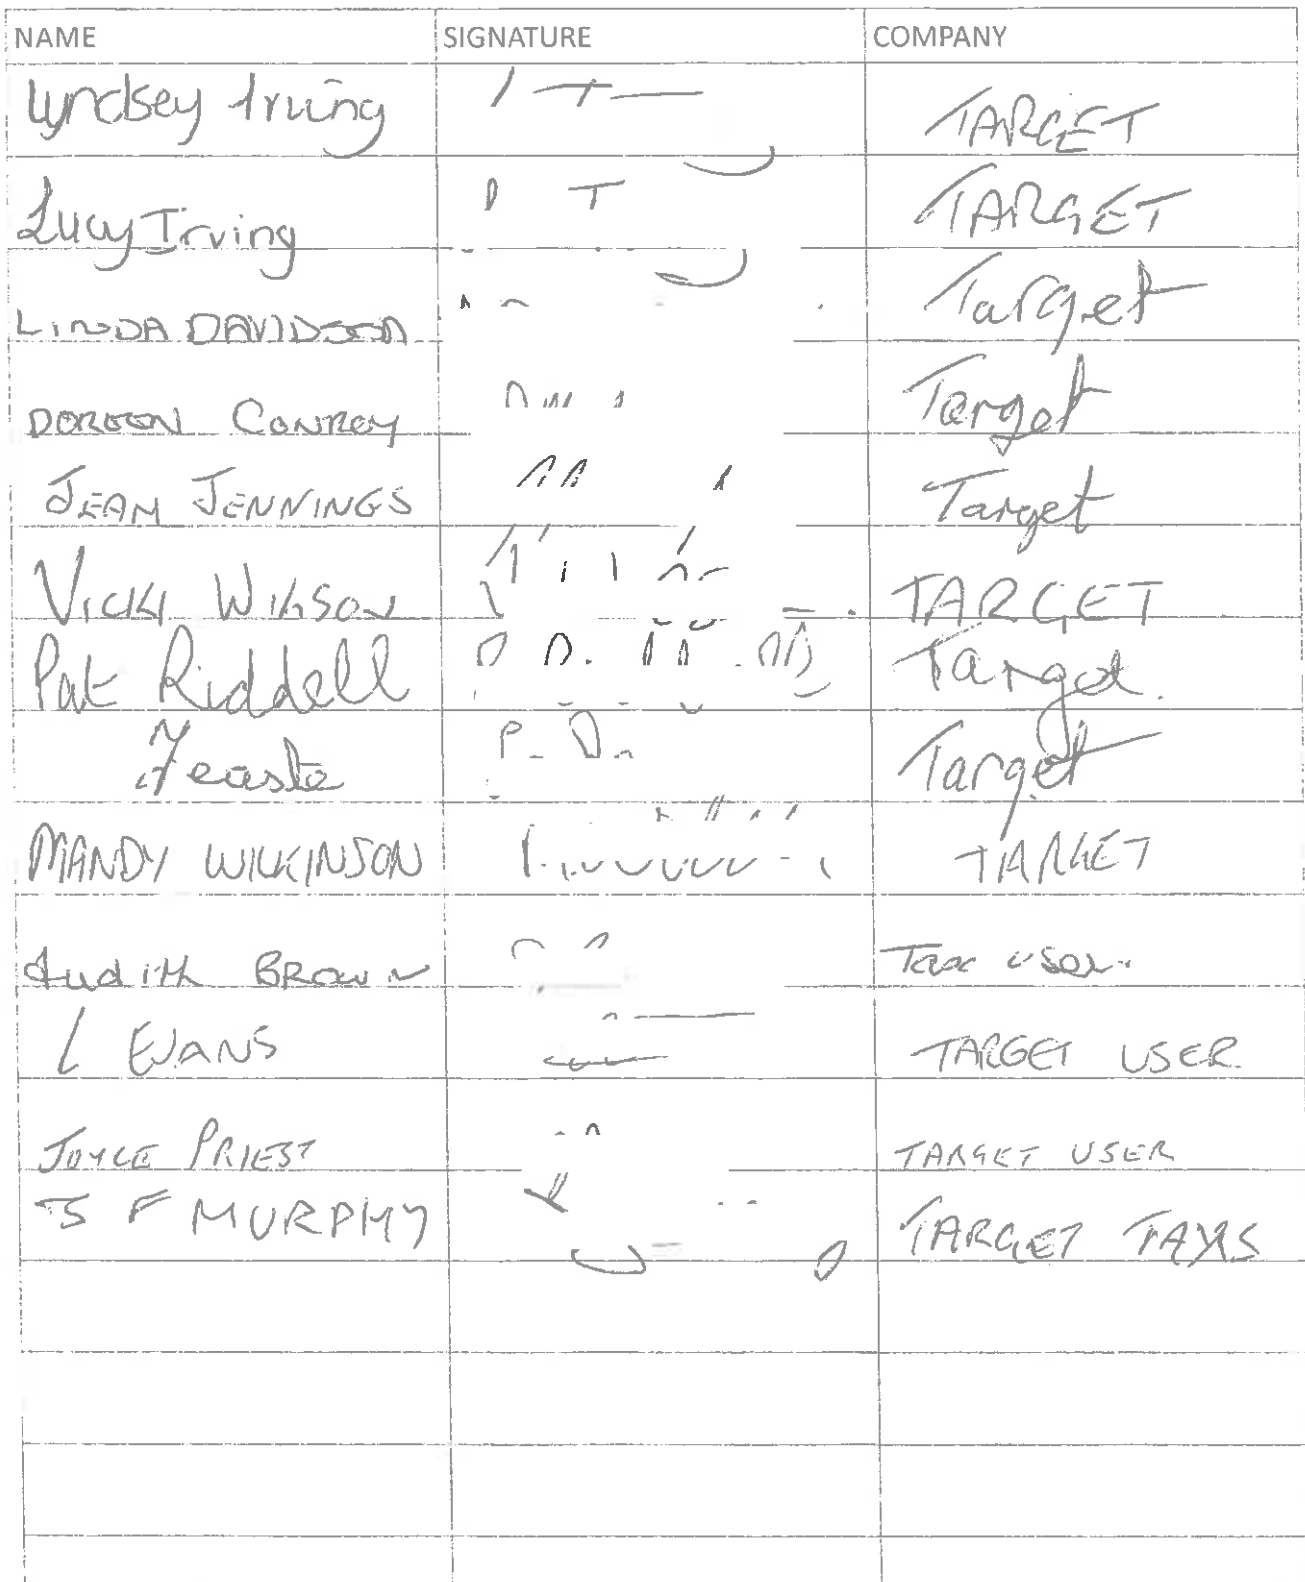 NAME SIGNATURE COMPANY
Lyndsey Irving TARGET
Lucy Irving TARGET
LINDA DAVIDSON Target
DOREEN CONROY Target
JEAN JENNINGS Target
VICKI WILSON TARGET
Pat Riddell Target.
Target
MANDY WILKINSON TARGET
Judith BROWN Taxi user.
L EVANS TARGET USER
JOYCE PRIEST TARGET USER
F MURPHY TARGET TAXIS